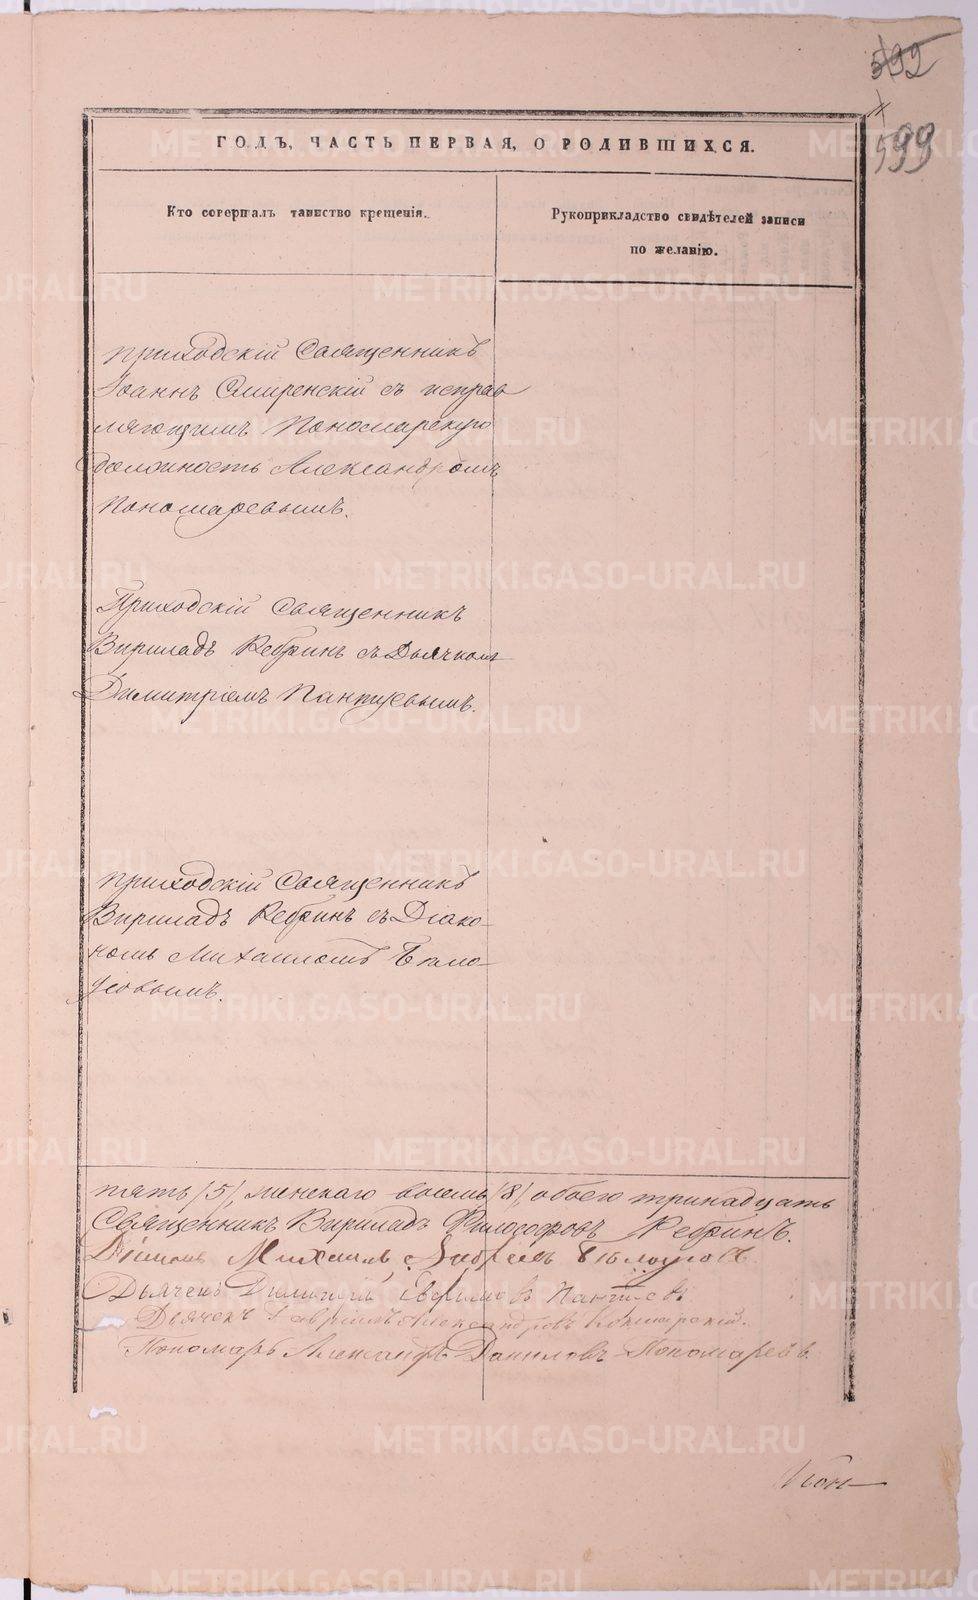 592
599
ГОДЪ, ЧАСТЬ ПЕРВАЯ, О РОДИВШИХСЯ.
Кто совершалъ таинство крещенія.
Рукоприкладство свидѣтелей записи
по желанію.
приходскій Священникъ
Іоаннъ Смиренскій съ исправ
ляющимъ Пономарскую
должность Александромъ
Пономаревымъ.
Приходскій Священникъ
Вириладъ Ребринъ съ Дьячкомъ
Димитріемъ Пантуевымъ.
приходскій Священникъ
Вириладъ Ребринъ съ Діако-
номъ Михаиломъ Бѣло-
усовымъ.
пять /5/, женскаго восемь /8/, обоего тринадцать
Священникъ Вириладъ Философовъ Ребринъ.
Діаконъ Михаилъ Бѣлоусовъ
Дьячекъ Димитрій Пантуевъ
Дьячекъ Гавріилъ Александровъ
Пономарь Александръ Даниловъ Пономаревъ
METRIKI.GASO-URAL.RU